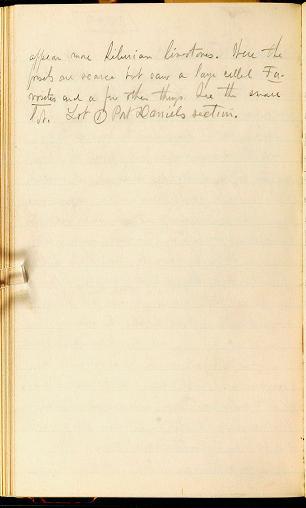 appear more Silurian limestones. Here the
fossils are scarce but saw a large celled Fa-
vosites and a few other things. See the
No. Lot ① Port Daniels section.